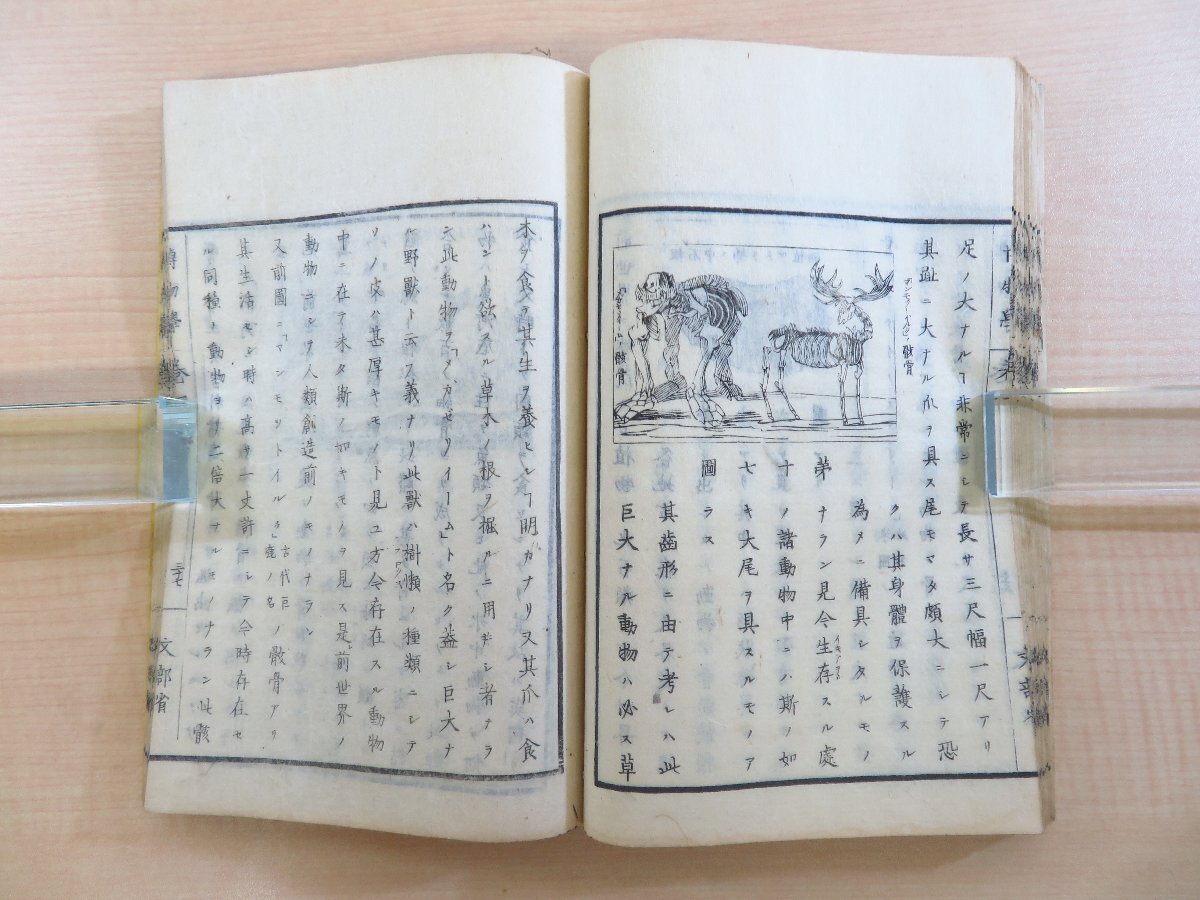 足ノ大ナルヿ非常ニシテ長サ三尺幅一尺アリ
其趾ニ大ナル爪ヲ具ス尾モマタ頗大ニシテ恐
クハ其身體ヲ保護スル
為メニ備具シタルモノ
ナラン見今生存スル處
ノ諸動物中ニハ斯ノ如
キ大尾ヲ具スルモノア
ラス
其齒形ニ由テ考レハ此
巨大ナル動物ハ必ス草
第
十
七
圖
骸骨
骸骨
木ヲ食ヲ其生ヲ養ヒシヿ明カナリ又其爪ハ食
ハント欲スル草木ノ根ヲ掘ルニ用ヰシ者ナラ
ン此動物ヲ「メガゼリイーム」ト名ク蓋シ巨大ナ
ル野獸ト云フ義ナリ此獸ハ樹懶ノ種類ニシテ
ソノ皮ハ甚厚キモノト見ユ方今存在スル動物
中ニ在テ未タ斯ノ如キモノヲ見ス是前世界ノ
動物ニシテ人類創造前ノモノナラン
又前圖ニ「マンモツトイル」古代巨鹿ノ名ノ骸骨アリ
其生活セシ時ハ高サ一丈許ニシテ今時存在セ
ル同種ノ動物ヨリ二倍大ナルモノナラン此骸
博物學 卷
三十七
文部省